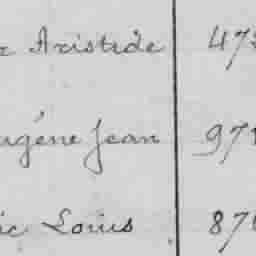 Aristide 47
Eugène Jean 97
Louis 87